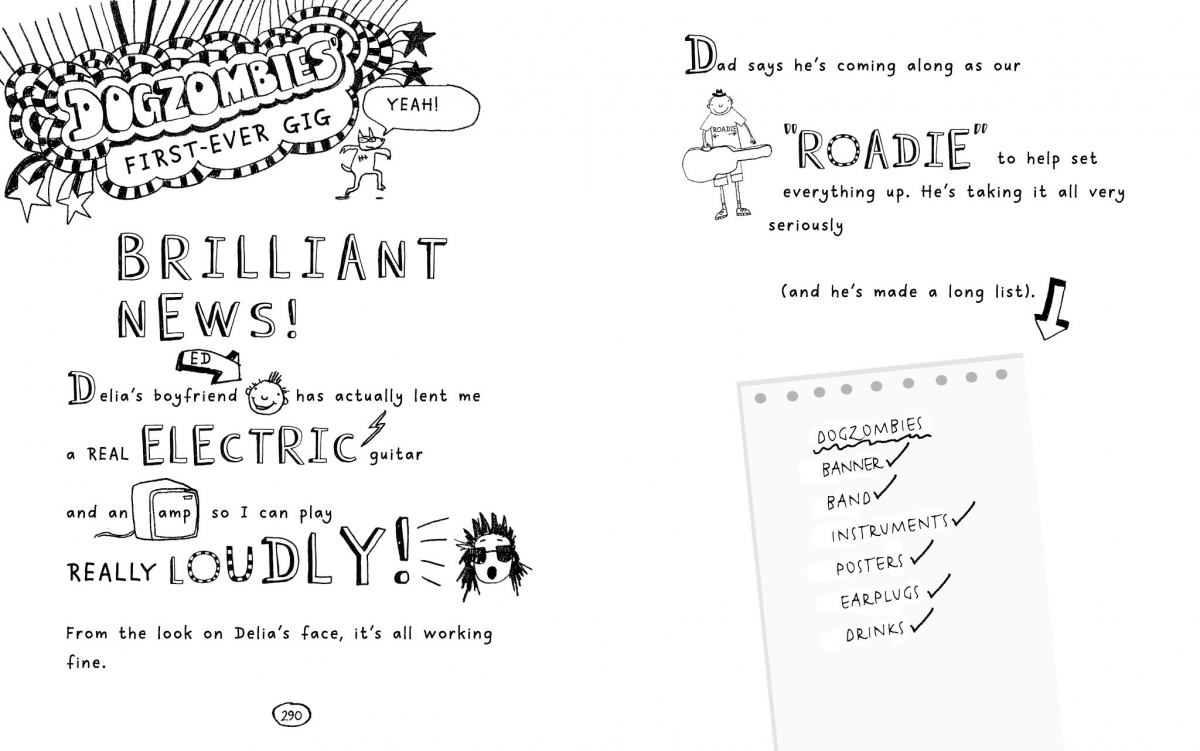 DOGZOMBIES'
FIRST-EVER GIG
YEAH!
BRILLIANT
NEWS!
ED
Delia's boyfriend has actually lent me
a REAL ELECTRIC guitar
and an amp so I can play
REALLY LOUDLY!
From the look on Delia's face, it's all working
fine.
290
Dad says he's coming along as our
ROADIE
"ROADIE" to help set
everything up. He's taking it all very
seriously
(and he's made a long list).
DOGZOMBIES
BANNER ✓
BAND ✓
INSTRUMENTS ✓
POSTERS ✓
EARPLUGS ✓
DRINKS ✓